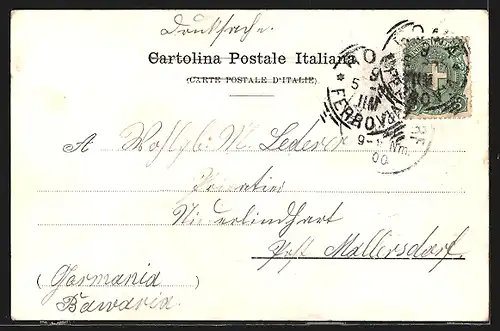 Drucksache.
Cartolina Postale Italiana
(CARTE POSTALE D'ITALIE)
ROMA
FERROVIA
9-
Nm.
00
A Wohlgb. M. Lederer
Niederlindhart
Post Mallersdorf.
(Germania)
Bawaria.